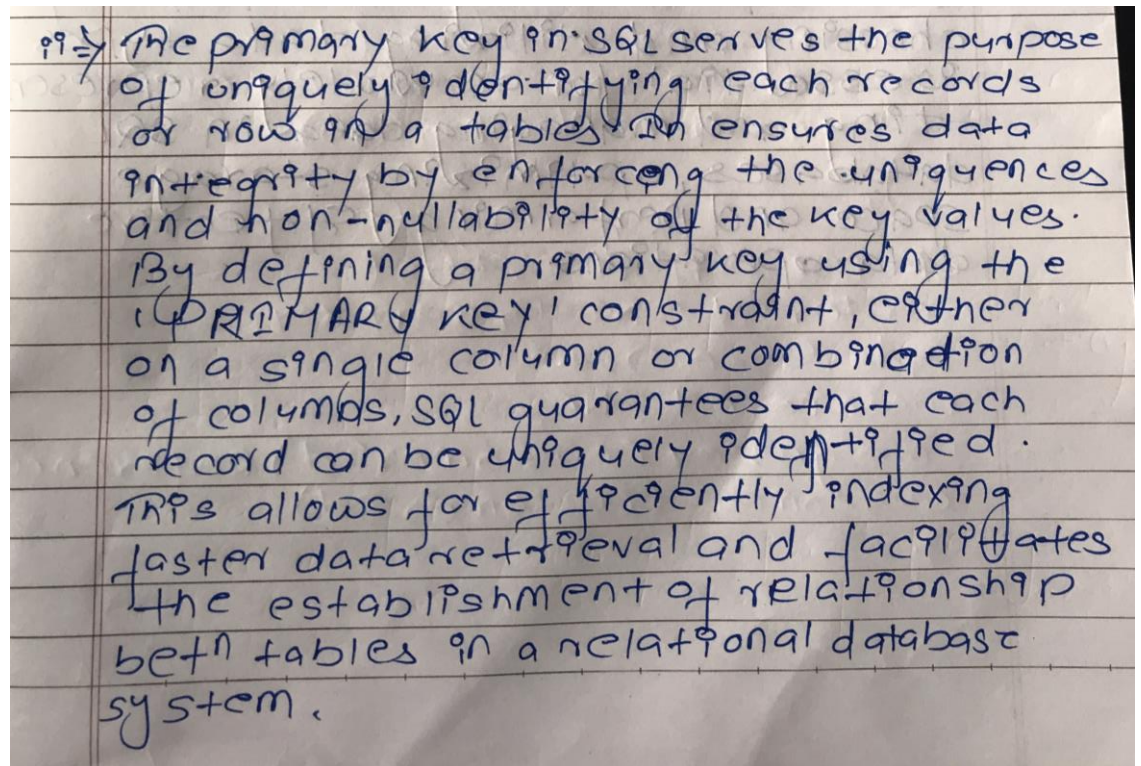 ii⇒ The primary key in SQL serves the purpose
of uniquely identifying each records
or row in a tables In ensures data
integrity by enforceng the uniquences
and non-nullability of the key values.
By defining a primary key using the
'PRIMARY KEY' constraint, either
on a single column or combination
of columns, SQL guarantees that each
record can be uniquely identified.
This allows for efficiently indexing
faster data retrieval and facilitates
the establishment of relationship
betn tables in a relational database
system.